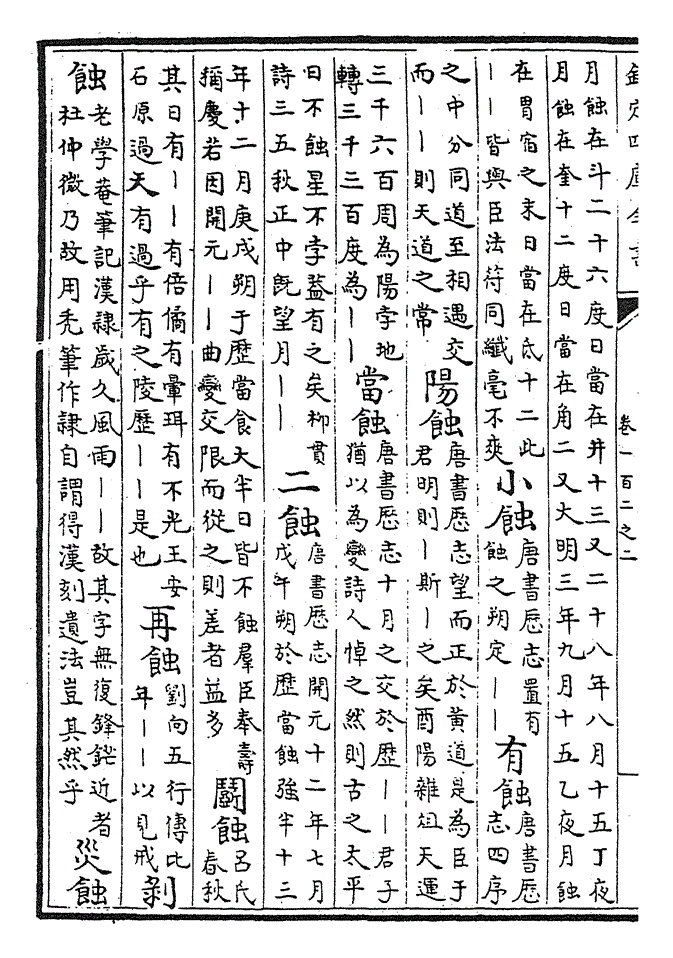 欽定四庫全書
卷一百二之二
月蝕在斗二十六度日當在井十三又二十八年八月十五丁夜
月蝕在奎十二度日當在角二又大明三年九月十五乙夜月蝕
在胃宿之末日當在氐十二此
｜｜皆與臣法符同纖毫不爽
小蝕
唐書歴志置有
蝕之朔定｜｜
有蝕
唐書歴
志四序
之中分同道至相遇交
而｜｜則天道之常
陽蝕
唐書歴志望而正於黄道是為臣于
君明則｜斯｜之矣酉陽雜俎天運
三千六百周為陽孛地
轉三千二百度為｜｜
當蝕
唐書歴志十月之交於歴｜｜君子
猶以為變詩人悼之然則古之太平
日不蝕星不孛葢有之矣柳貫
詩三五秋正中旣望月｜｜
二蝕
唐書歴志開元十二年七月
戊午朔於歴當蝕強半十三
年十二月庚戌朔于歴當食大半日皆不蝕羣臣奉壽
稱慶若因開元｜｜曲變交限而從之則差者益多
鬭蝕
呂氏
春秋
其日有｜｜有倍僪有暈珥有不光王安
石原過天有過乎有之陵歴｜｜是也
再蝕
劉向五行傳比
年｜｜以見戒
剝
蝕
老學菴筆記漢隷歲久風雨｜｜故其字無復鋒鋩近者
杜仲微乃故用禿筆作隷自謂得漢刻遺法豈其然乎
災蝕